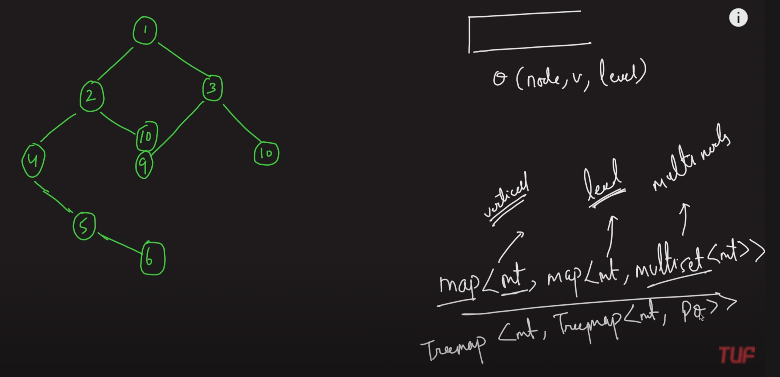 1
2
3
10
4
9
10
5
6
Q (node, v, level)
vertical
level
multinodes
map<int, map<int, multiset<int>>
Treemap <int, Treemap<int, PQ>>
TUF
i